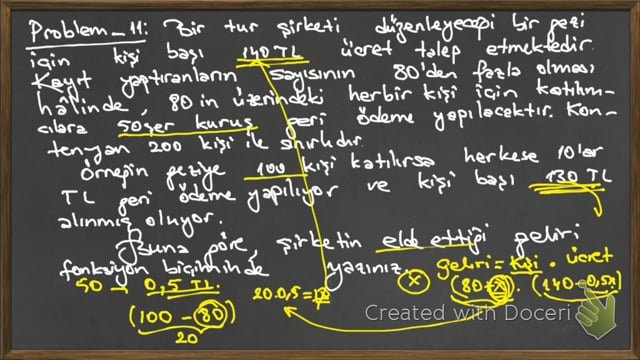 Problem_11: Bir tur şirketi düzenleyeceği bir gezi
için kişi başı 140 TL ücret talep etmektedir.
Kayıt yaptıranların sayısının 80'den fazla olması
hâlinde, 80 in üzerindeki herbir kişi için katılım-
cılara 50şer kuruş geri ödeme yapılacaktır. Kon-
tenjan 200 kişi ile sınırlıdır.
Örneğin geziye 100 kişi katılırsa herkese 10'ar
TL geri ödeme yapılıyor ve kişi başı 130 TL
alınmış oluyor.
Buna göre, şirketin elde ettiği geliri
fonksiyon biçiminde yazınız.
geliri = kişi . ücret
50 → 0,5 TL.
20.0,5=10
(80+x) . (140-0,5x)
(100 - 80)
20
Created with Doceri